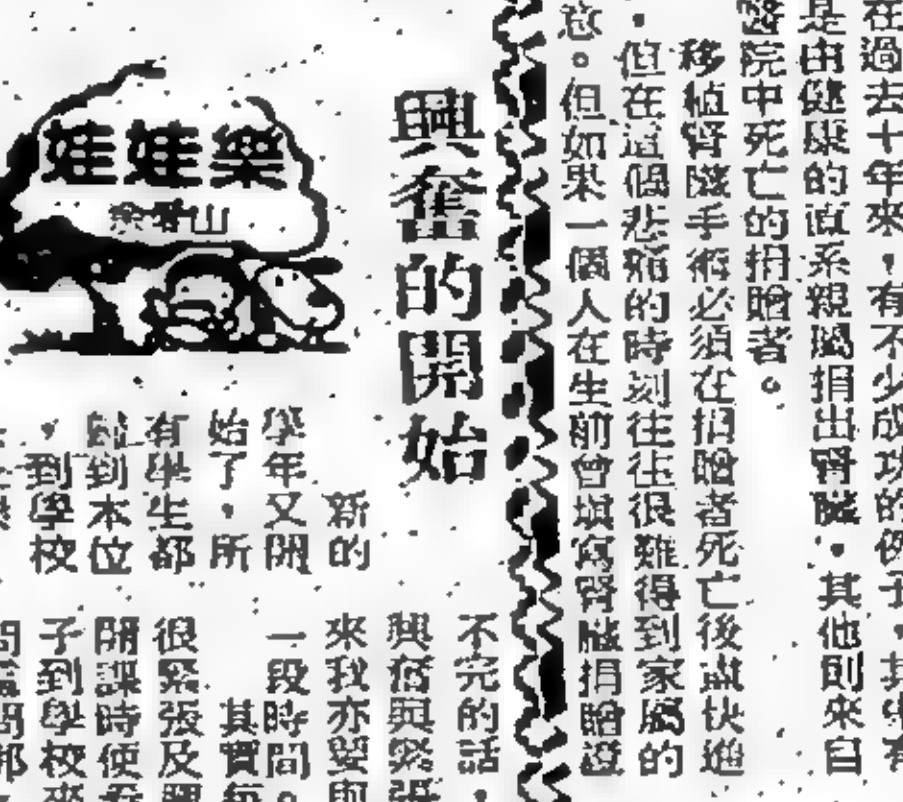 在過去十年來，有不少成功的例子，其中有
是由健康的直系親屬捐出腎臟，其他則來自
醫院中死亡的捐贈者。
移植腎臟手術必須在捐贈者死亡後盡快進
，但在這個悲痛的時刻往往很難得到家屬的
意。但如果一個人在生前曾填寫腎臟捐贈證
興奮的開始
娃娃樂
新的
學年又開
始了，所
有學生都
歸到本位
，到學校
不完的話，
興奮與緊張
來我亦要與
一段時間。
其實每
很緊張及興
開課時便看
子到學校來